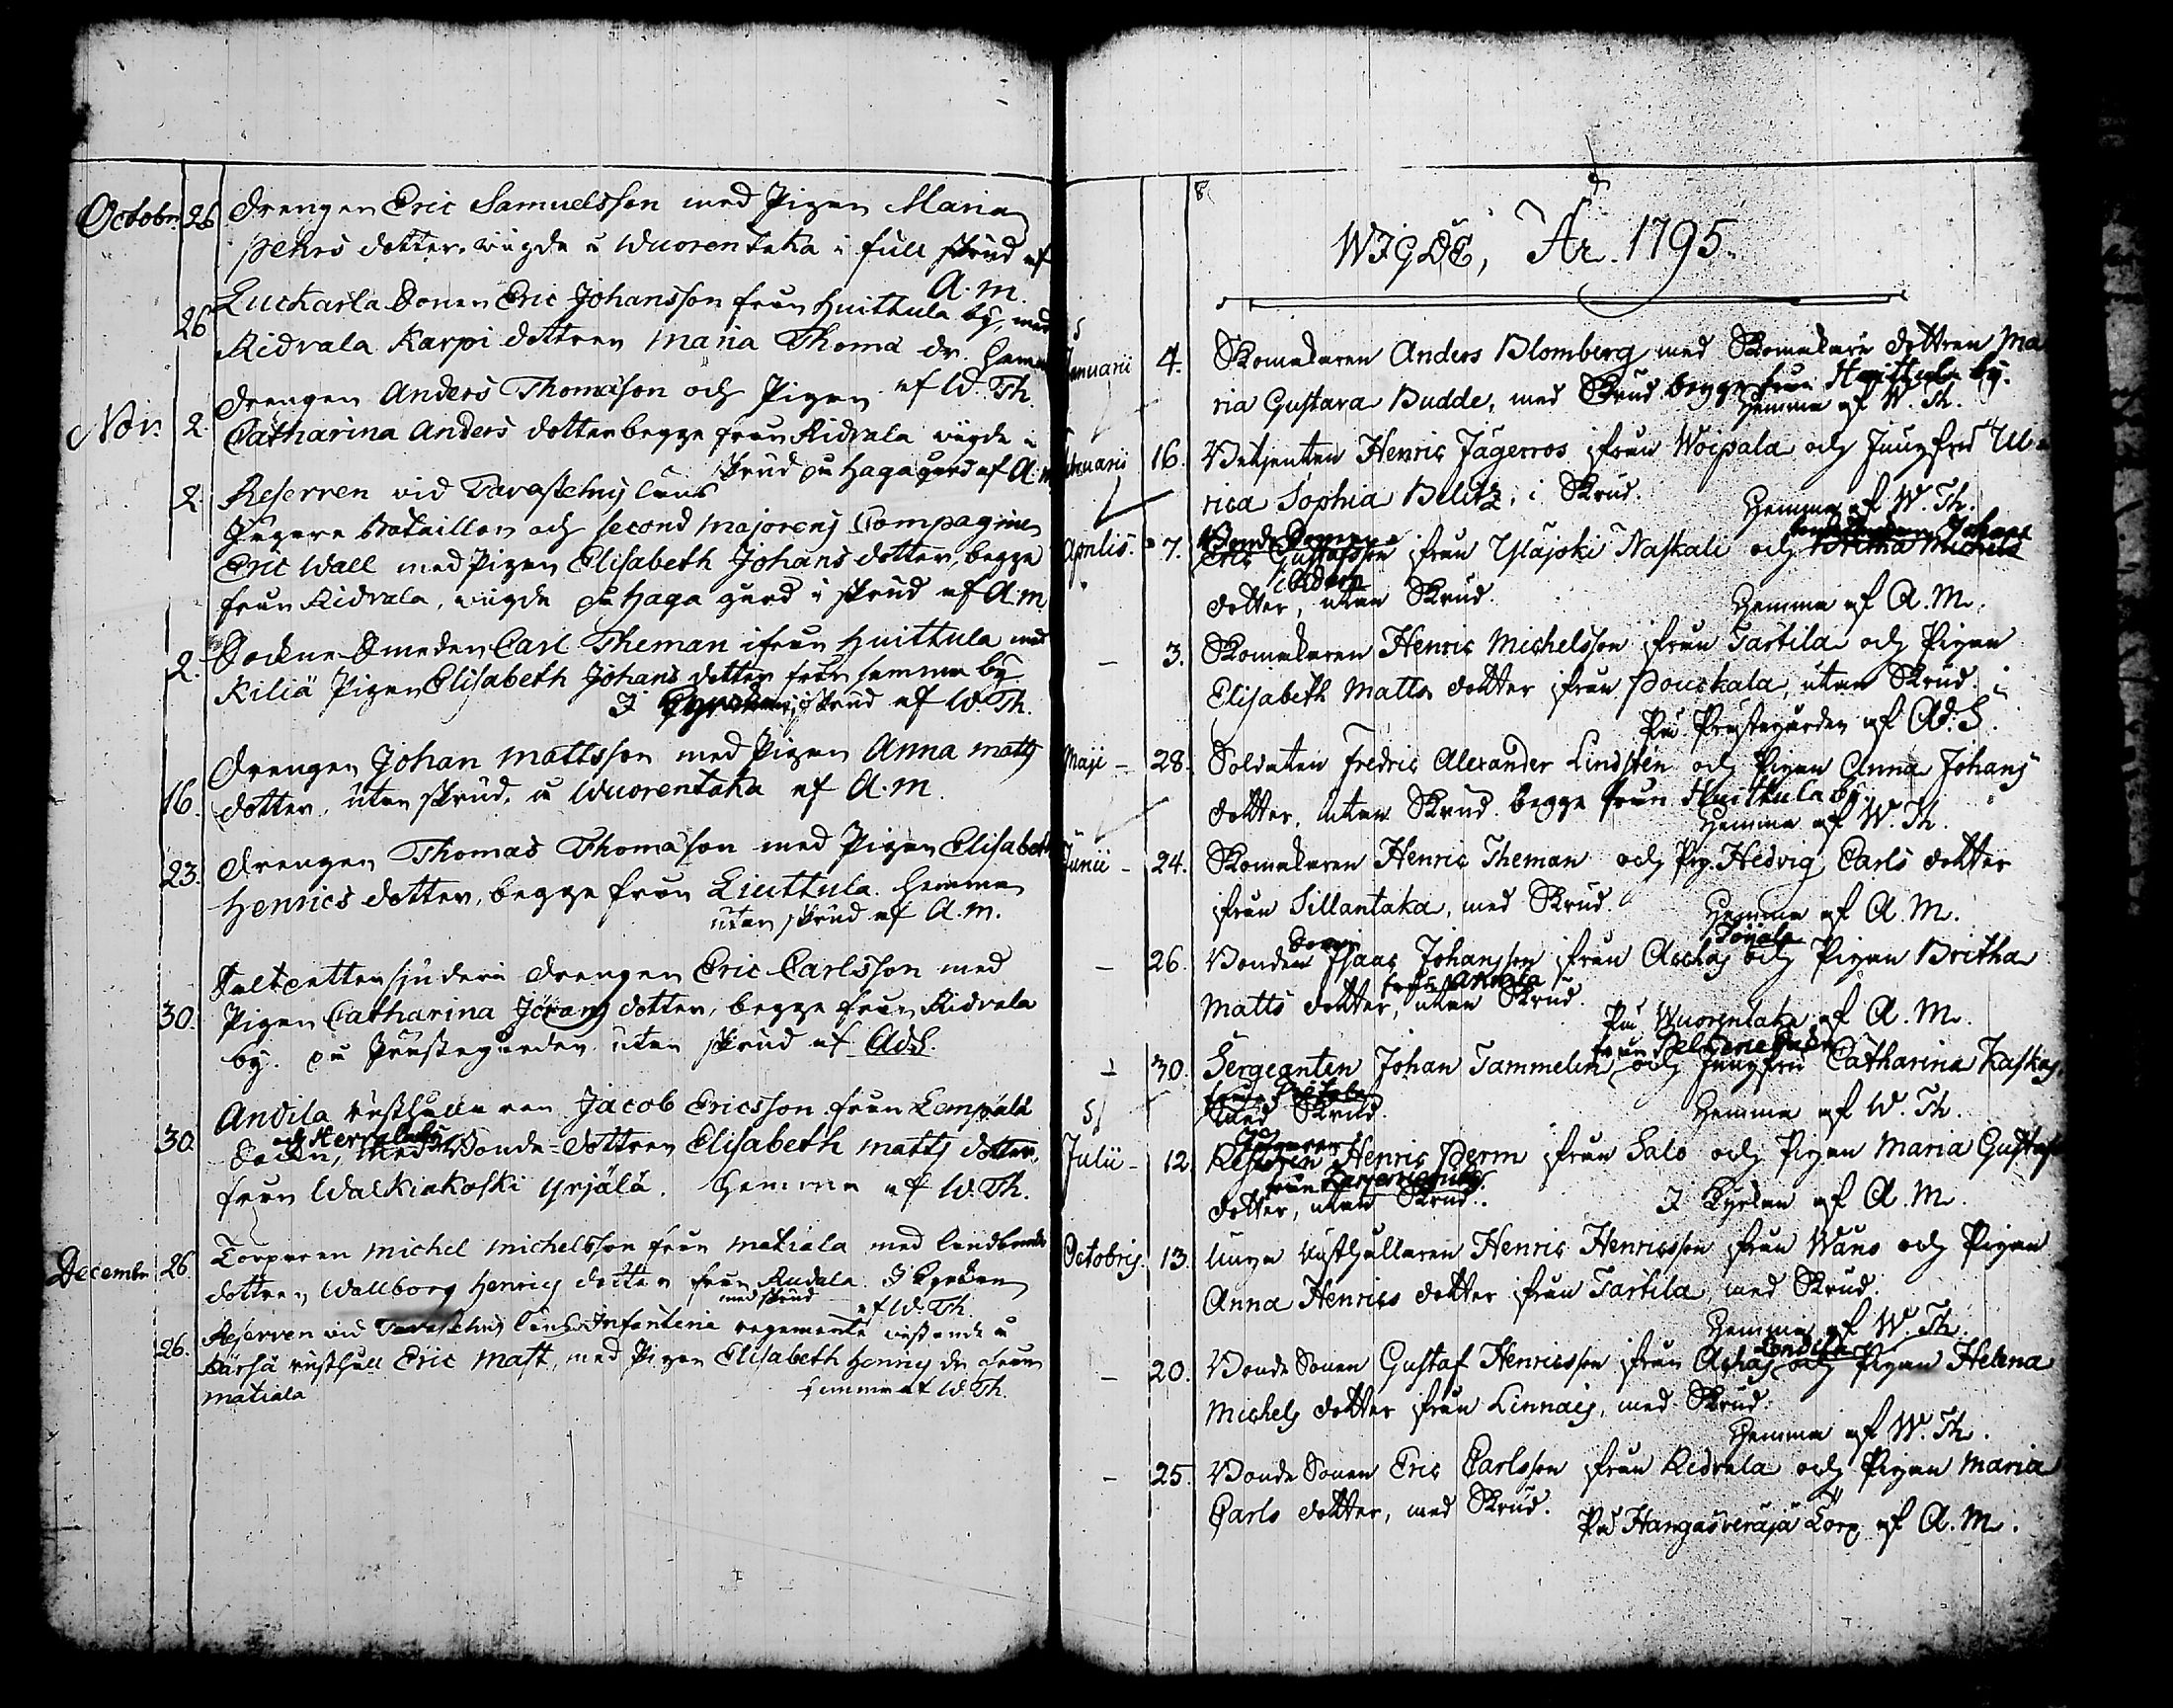 Octobr. 26. Drengen Eric Samuelsson med Pigan Maria
Pehrs dotter, wigde i Wuorentaka i full skrud af
A. M.
26 Luckarla Sonen Eric Johansson från Huittula by, med
Ridvala Karpi dottren Maria Thomä dr. hemma
af W. Th.
Nov. 2. Drengen Anders Thomäson och Pigan
Catharina Anders dotter begge från Ridvala wigde i
skrud på Haga gård af A. M.
2. Reserven vid Tavastehus läns
Jägare Bataillon och second Majorens Compagnie
Eric Wall med Pigan Elisabeth Johans dotter, begge
från Ridvala, wigde på Haga gård i skrud af A. M
2. Sockne Smeden Carl Theman ifrån Huittula med
Kiliä Pigan Elisabeth Johans dotter från samma by
I Kyrckan, i skrud af W. Th.
Drengen Johan Mattsson med Pigan Anna Matts
16. dotter. utan skrud, i Wuorentaka af A. M.
23. Drengen Thomas Thomäson med Pigan Elisabeth
Henrics dotter, begge från Liuttula. hemma
utan skrud af A. M.
Saltpettersjuderi Drengen Eric Carlsson med
30. Pigan Catharina Jörans dotter, begge från Ridvala
by. på Prästegården utan skrud af Ad. S.
Andila rusthållaren Jacob Ericsson från Lempälä
30. Sockn, och Herrala by med Bonde-dottren Elisabeth Matts dotter,
från Walkiakoski Yrjälä. hemma af W. Th.
Decembr. 26. Torparen Michel Michelsson från Matiala med landbonde
dottren Wallborg Henrics dotter från Rudala. I Kyrckan
med skrud af W. Th.
26. Reserven vid Tavastehus läns Infanteri regemente wistande i
Kärsä rusthåll Eric Mast, med Pigan Elisabeth Henrics dr från
Matiala hemma af W. Th.
WIGDE, År 1795.
Januarii 4. Skomakaren Anders Blomberg med Skomakare dottren Ma
ria Gustava Budde, med Skrud begge från Huittula by.
Hemma af W. Th.
Februarii 16. Betjenten Henric Jägerros ifrån Woipala och Jungfrud Ul-
rica Sophia Belitz, i Skrud.
Hemma af W. Th.
Bonde Sonen Johans
Aprilis. 7. Eric Gustafsson ifrån Yläjoki Naskali och Britha Michels
dotter, utan Skrud.
Hemma af A. M.
- 3. Skomakaren Henric Michelsson ifrån Tarttila och Pigan
Elisabeth Matts dotter ifrån Pouckala, utan Skrud
På Prästegården af Ad. S.
Maji - 28. Soldaten Fredric Alexander Lindstén och Pigan Anna Johans
dotter, utan Skrud. begge från Huittula by.
Hemma af W. Th.
Junii - 24. Skomakaren Henric Theman och Pig. Hedvig Carls dotter
ifrån Sillantaka, med Skrud.
Hemma af A. M.
Sonen Töijala
- 26. Bonden Isaac Johansson ifrån Acchas och Pigan Britha
från Annila
Matts dotter, utan Skrud.
På Wuorentaka af A. M.
- 30. Sergeanten Johan Tammelin och Jungfru Catharina Kaskas,
med Skrud.
Hemma af W. Th.
Julii - 12. Reserven Henric Perm ifrån Salo och Pigan Maria Gustafs
dotter, utan Skrud.
I Kyrkan af A. M.
Octobris. 13. Unga Rusthållaren Henric Henricsson ifrån Wäno och Pigan
Anna Henrics dotter ifrån Tarttila, med Skrud.
Hemma af W. Th.
- 20. Bonde Sonen Gustaf Henricsson ifrån Achas och Pigan Helena
Michels dotter ifrån Linnais, med Skrud.
Hemma af W. Th.
- 25. Bonde Sonen Eric Carlsson ifrån Ridvala och Pigan Maria
Carls dotter, med Skrud.
På Hangasweräjä Torp af A. M.